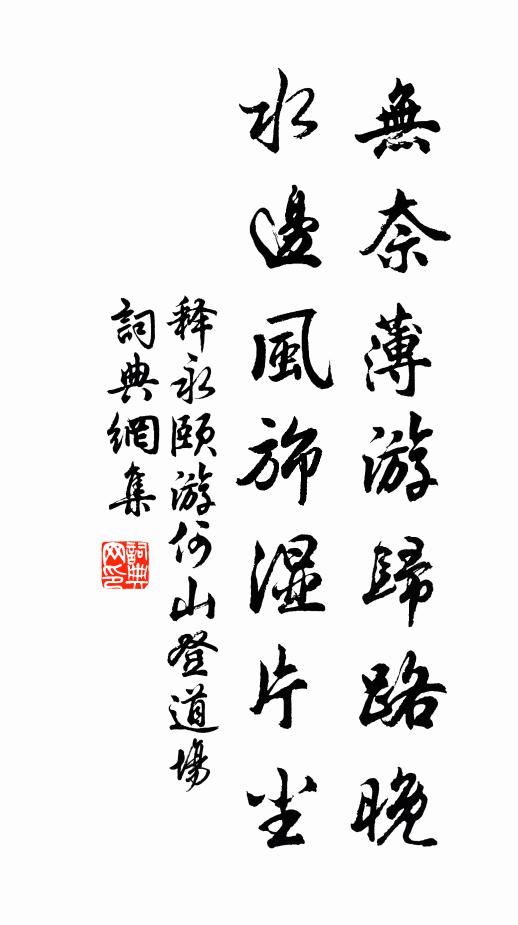 無奈薄游歸路晚
水邊風旆湿片尘
释永頤游何山登道場
詞典網集
詞典网印